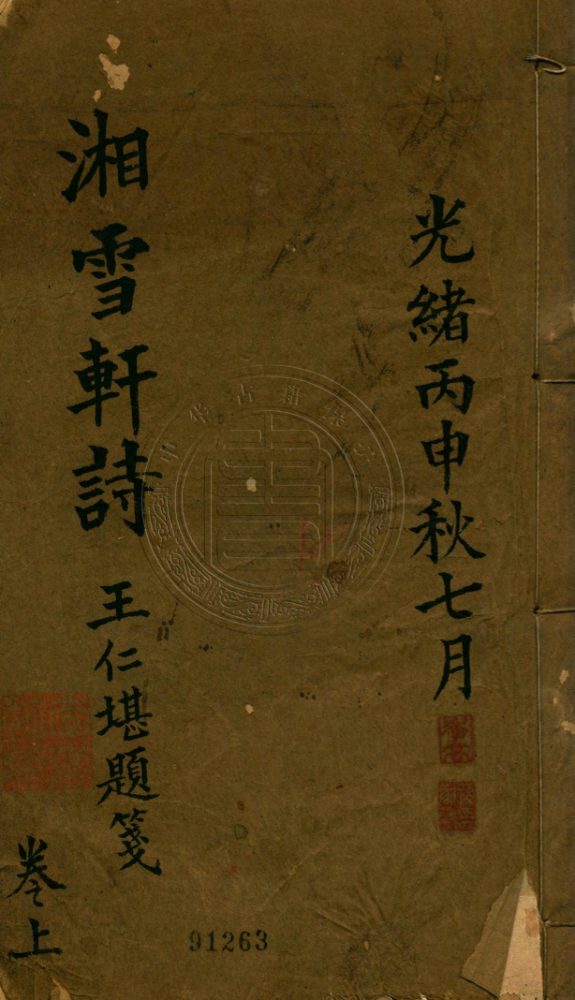 光緒丙申秋七月
湘雪軒詩
王仁堪題箋
卷上
91263